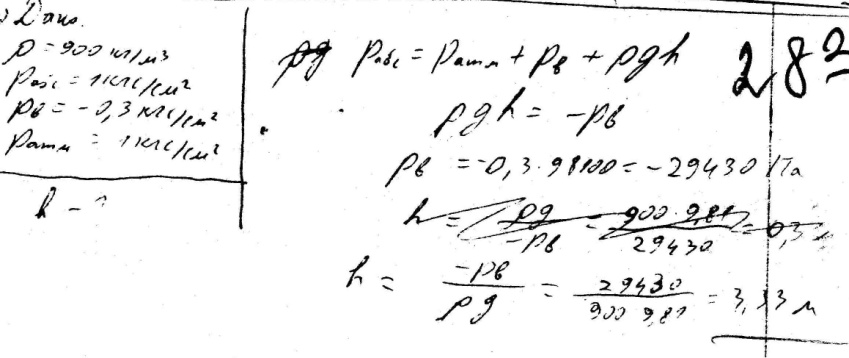 ) Дано.
ρ = 900 кг/м³
Pабс = 1 кгс/см²
Pв = -0,3 кгс/см²
Pатм = 1 кгс/см²
h - ?
28
ρg Pабс = Pатм + Pв + ρgh
ρgh = -Pв
Pв = -0,3·98100 = -29430 Па
h = ρg / -Pв = 900·9,81 / 29430 = 0,3
h = -Pв / ρg = 29430 / 900 9,81 = 3,33 м